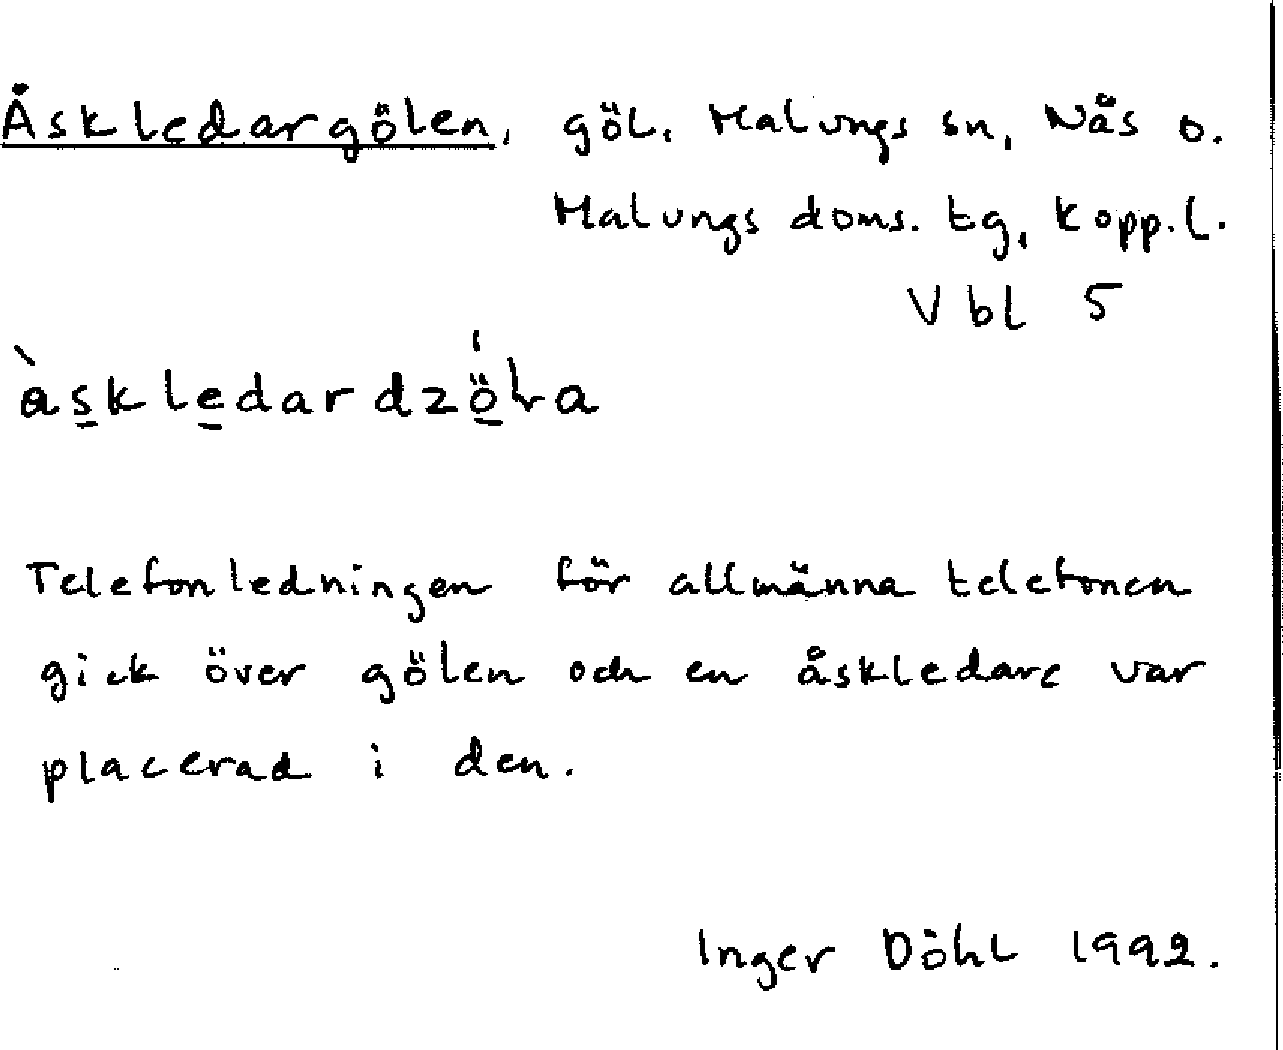 Åskledargölen, göl. Malungs sn, Nås o.
Malungs doms. tg, Kopp. l.
Vbl 5
àskledardzöla
Telefonledningen för allmänna telefonen
gick över gölen och en åskledare var
placerad i den.
Inger Döhl 1992.